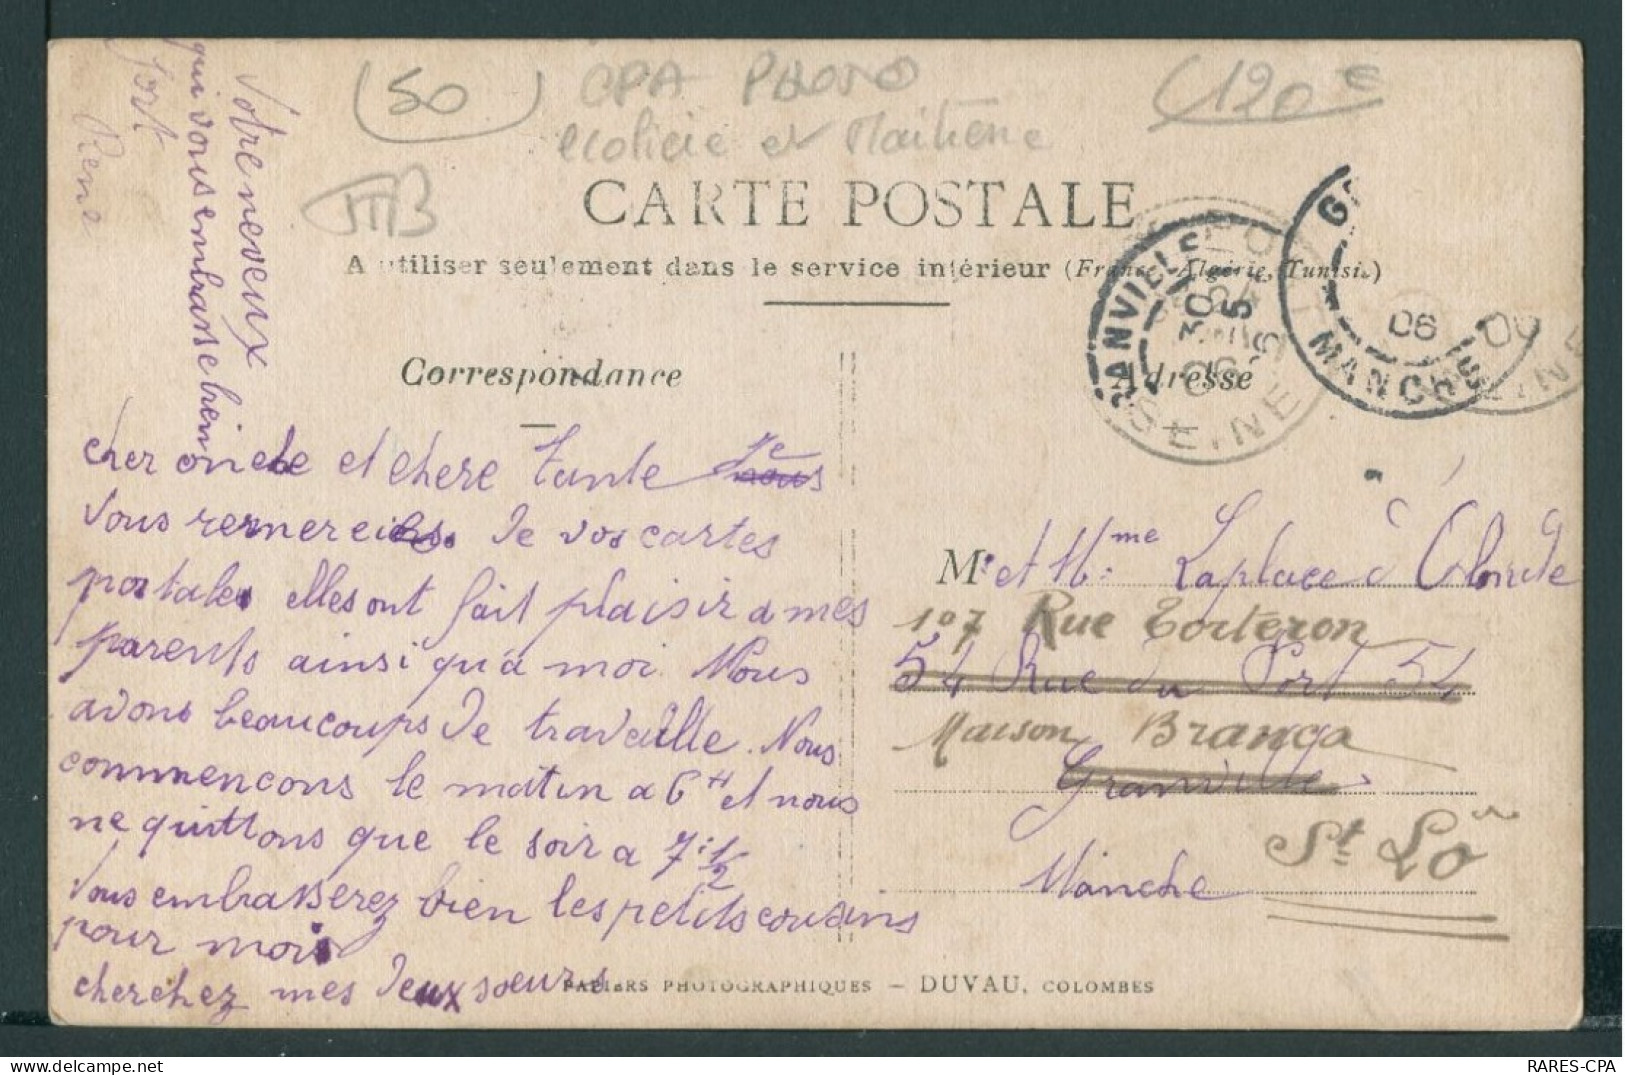 (50)
CPA PHOTO
(120 €
ecoliere et Maitresse
TTB
CARTE POSTALE
A utiliser seulement dans le service intérieur (France, Algérie, Tunisie)
Correspondance
Adresse
GRANVILLE
30
5
06
MANCHE
06
SEINE
cher oncle et chere tante Je
vous remercie de vos cartes
postales elles ont fait plaisir a mes
parents ainsi qu'a moi. Nous
avons beaucoups de travaille. Nous
commencons le matin a 6 H et nous
ne quittons que le soir a 7 1/2
Vous embrasserez bien les petits cousins
pour moi
cherchez mes deux sœurs
Votre neveux
qui vous embrasse bien
fort
Rene
M. et Mme Laplace
107 Rue Torteron
54 Rue du Port 54
Maison Branca
Granville
St Lô
Manche
PAPIERS PHOTOGRAPHIQUES – DUVAU, COLOMBES
RARES-CPA